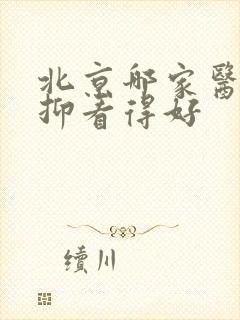 北京邮家醫
抑看得好
續川